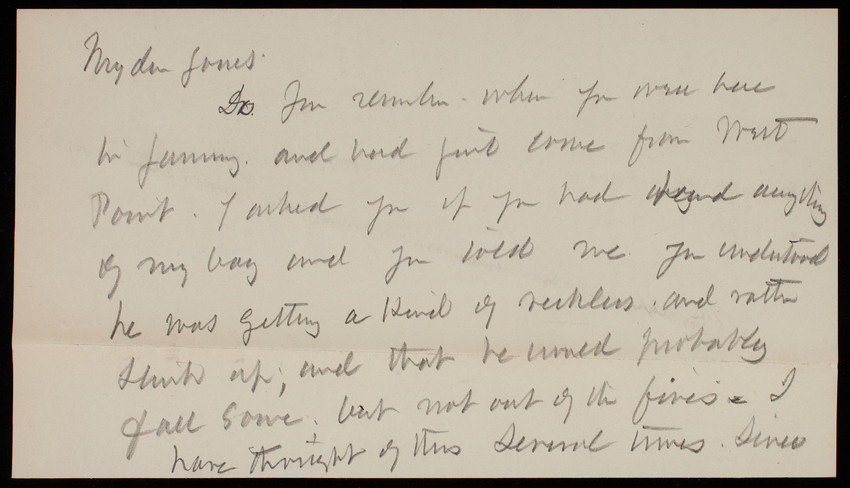 My dear Jones.
Do you remember. when you were here
in January. and had just come from West
Point. I asked you if you had heard anything
of my boy and you told me you understood
he was getting a kind of reckless. and rather
stuck up; and that he would probably
fall some, but not out of the fives = I
have thought of this several times. Since